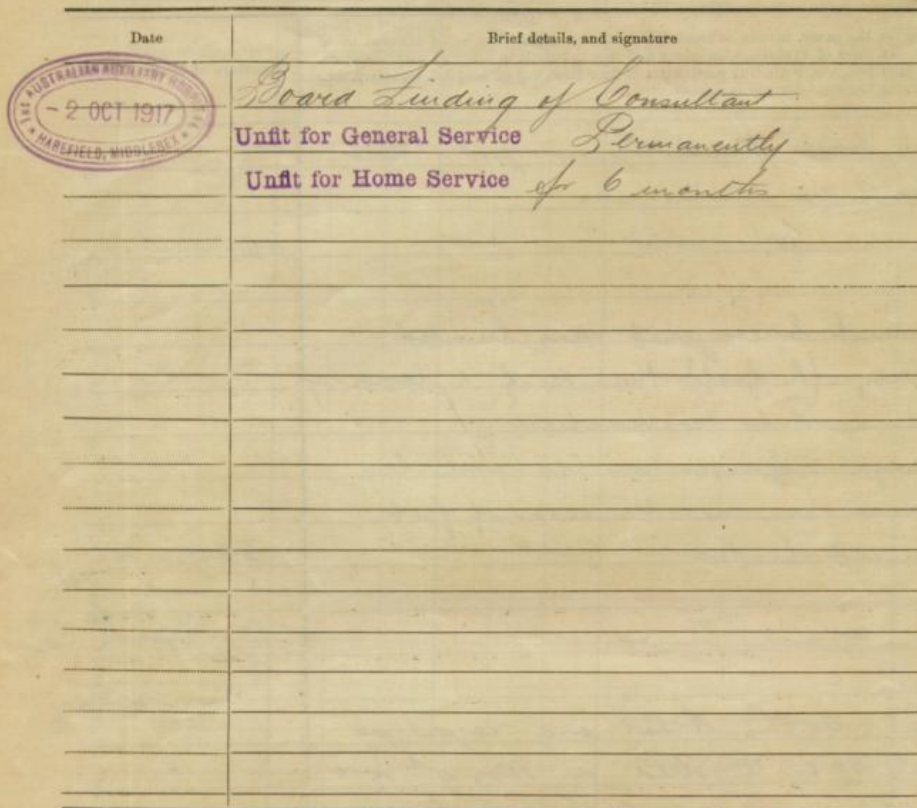 Date
Brief details, and signature
1ST AUSTRALIAN AUXILIARY HOSPITAL
- 2 OCT 1917
HAREFIELD, MIDDLESEX
Board Finding of Consultant
Unfit for General Service Permanently
Unfit for Home Service for 6 months